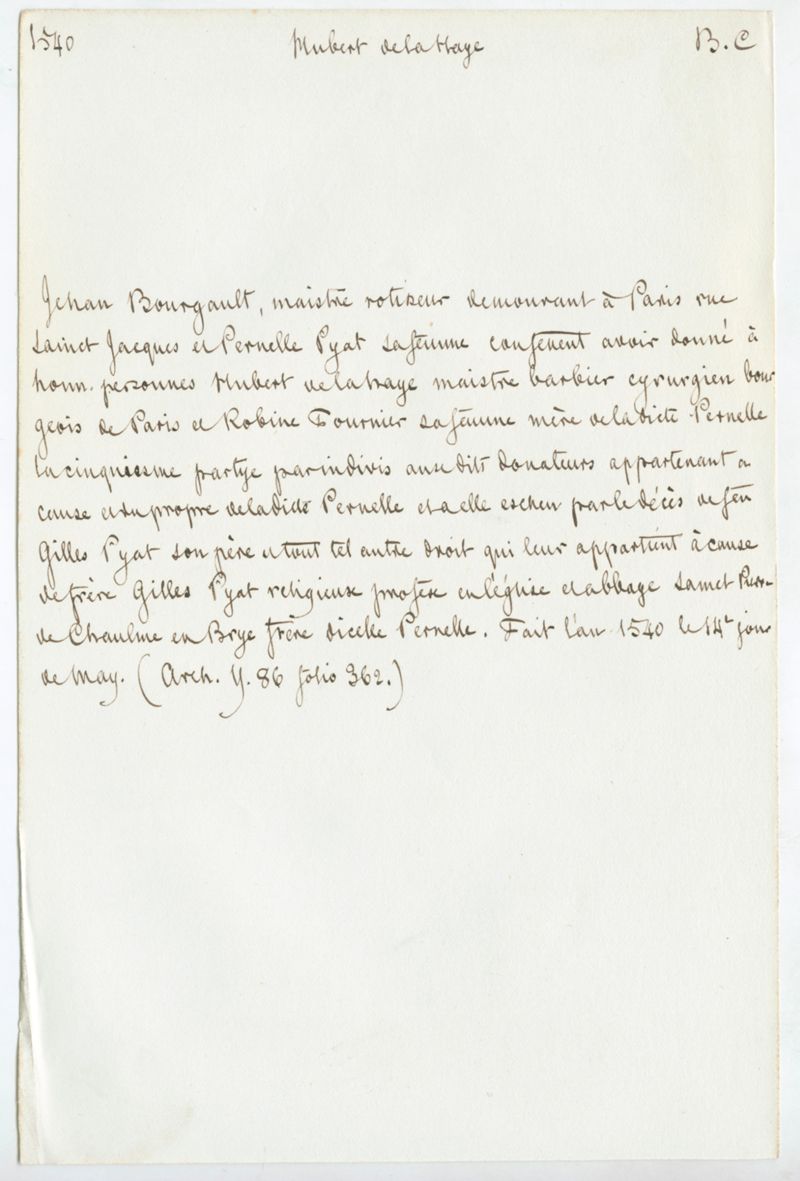 1540 Hubert de la Haye B. C
Jehan Bourgault, maistre rotisseur demourant à Paris rue
Sainct Jacques et Pernelle Pyat sa femme confessent avoir donné à
honn. personnes Hubert de la Haye maistre barbier cyrurgien bour
geois de Paris et Robine Fournier sa femme mère de la dicte Pernelle
la cinquiesme partye par indivis ausedits donateurs appartenant a
cause et du propre de la dicte Pernelle et a elle escheu par le décès de feu
Gilles Pyat son père et tout tel autre droit qui leur appartient à cause
de frère Gilles Pyat religieux profex en l'église et abbaye Sainct Pierre
de Chaulme en Brye frère dicelle Pernelle. Fait l'an 1540 le 14e jour
de May. (Arch. Y. 86 folio 362.)